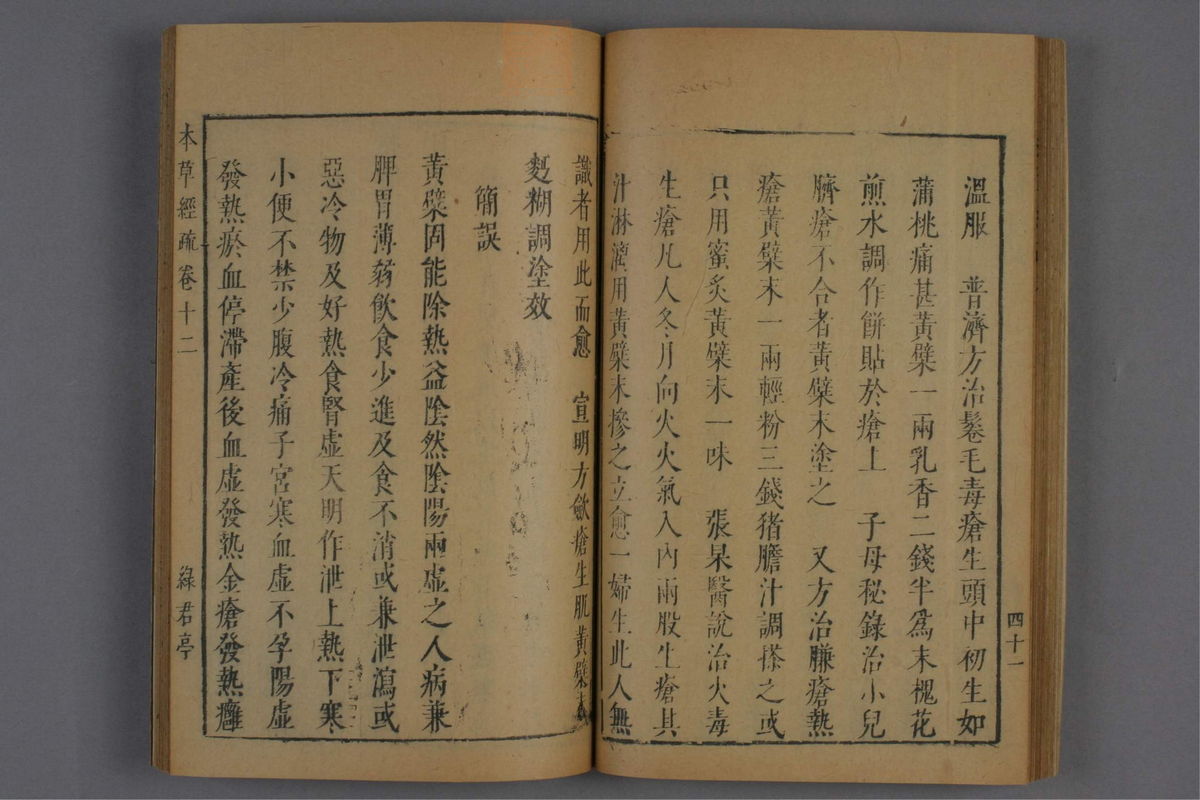 溫服　普濟方治鬈毛毒瘡生頭中初生如
蒲桃痛甚黃檗一兩乳香二錢半爲末槐花
煎水調作餅貼於瘡上　子母秘錄治小兒
臍瘡不合者黃檗末塗之　又方治臁瘡熱
瘡黃檗末一兩輕粉三錢猪膽汁調搽之或
只用蜜炙黃檗末一味　張杲醫說治火毒
生瘡凡人冬月向火火氣入內兩股生瘡其
汁淋漓用黃檗末摻之立愈一婦生此人無
四十一
識者用此而愈　宣明方歛瘡生肌黃檗末
麪糊調塗效
簡誤
黃檗固能除熱益陰然陰陽兩虛之人病兼
脾胃薄弱飲食少進及食不消或兼泄瀉或
惡冷物及好熱食腎虛天明作泄上熱下寒
小便不禁少腹冷痛子宮寒血虛不孕陽虛
發熱瘀血停滯產後血虛發熱金瘡發熱癰
本草經疏　卷十二　綠君亭